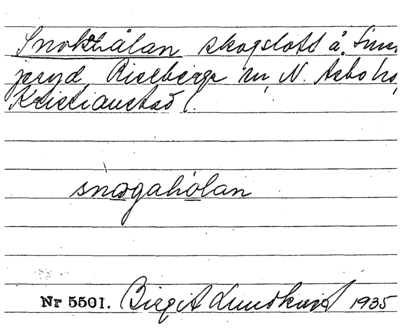 Snokhålan skogslott å
Riseberga sn, N. Åsbo hd,
Kristianstad l.
snogahólan
Nr 5501. Birgit Lundkvist 1935